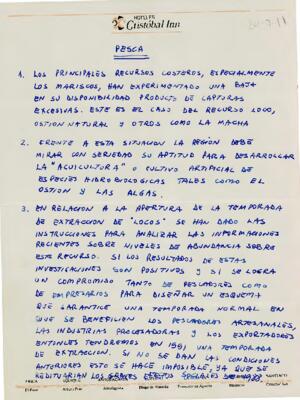 HOTELES
Cristóbal Inn
PESCA
1. LOS PRINCIPALES RECURSOS COSTEROS, ESPECIALMENTE
LOS MARISCOS, HAN EXPERIMENTADO UNA BAJA
EN SU DISPONIBILIDAD PRODUCTO DE CAPTURAS
EXCESIVAS. ESTE ES EL CASO DEL RECURSO LOCO,
OSTION NATURAL Y OTROS COMO LA MACHA
2. FRENTE A ESTA SITUACION LA REGIÓN DEBE
MIRAR CON SERIEDAD SU APTITUD PARA DESARROLLAR
LA "ACUICULTURA" O CULTIVO ARTIFICIAL DE
ESPECIES HIDROBIOLOGICAS TALES COMO EL
OSTION Y LAS ALGAS.
3. EN RELACION A LA APERTURA DE LA TEMPORADA
DE EXTRACCION DE "LOCOS" SE HAN DADO LAS
INSTRUCCIONES PARA ANALIZAR LAS INFORMACIONES
RECIENTES SOBRE NIVELES DE ABUNDANCIA SOBRE
ESTE RECURSO. SI LOS RESULTADOS DE ESTAS
INVESTIGACIONES SON POSITIVOS Y SI SE LOGRA
UN COMPROMISO TANTO DE PESCADORES COMO
DE EMPRESARIOS PARA DISEÑAR UN ESQUEMA
QUE GARANTICE UNA TEMPORADA NORMAL EN
QUE SE BENEFICIEN LOS PESCADORES ARTESANALES,
LAS INDUSTRIAS PROCESADORAS Y LOS EXPORTADORES
ENTONCES TENDREMOS EN 1991 UNA TEMPORADA
DE EXTRACCION. SI NO SE DAN LAS CONDICIONES
ANTERIORES ESTO SE HACE IMPOSIBLE, YA QUE SE
REDITUARIAN LOS GRAVES EFECTOS SOCIALES DE